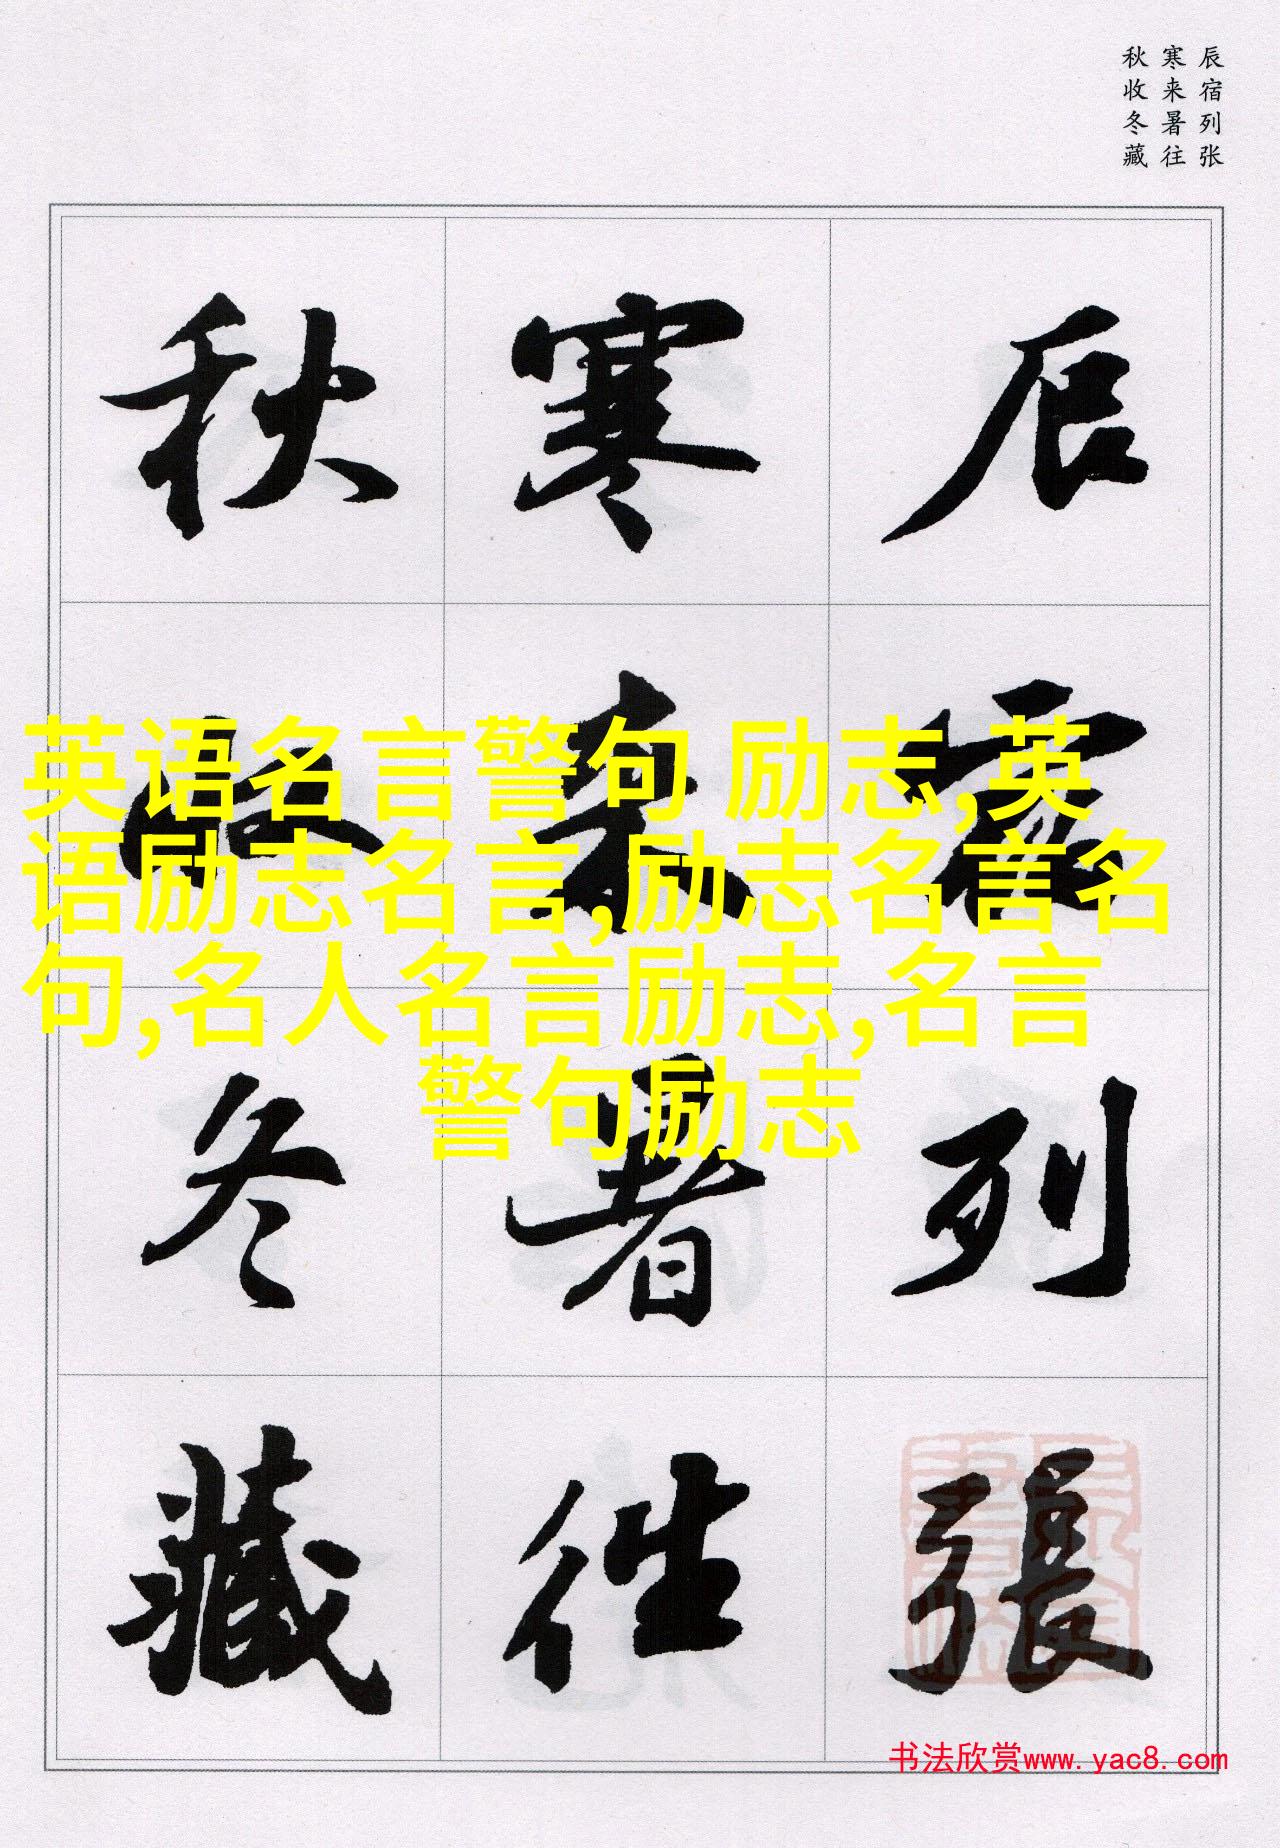 辰宿列张
寒来暑往
秋收冬藏
辰宿列張
寒来暑往
秋收冬藏
英语名言警句 励志,英
语励志名言,励志名言名
句,名人名言励志,名言
警句励志
书法欣赏www.yac8.com